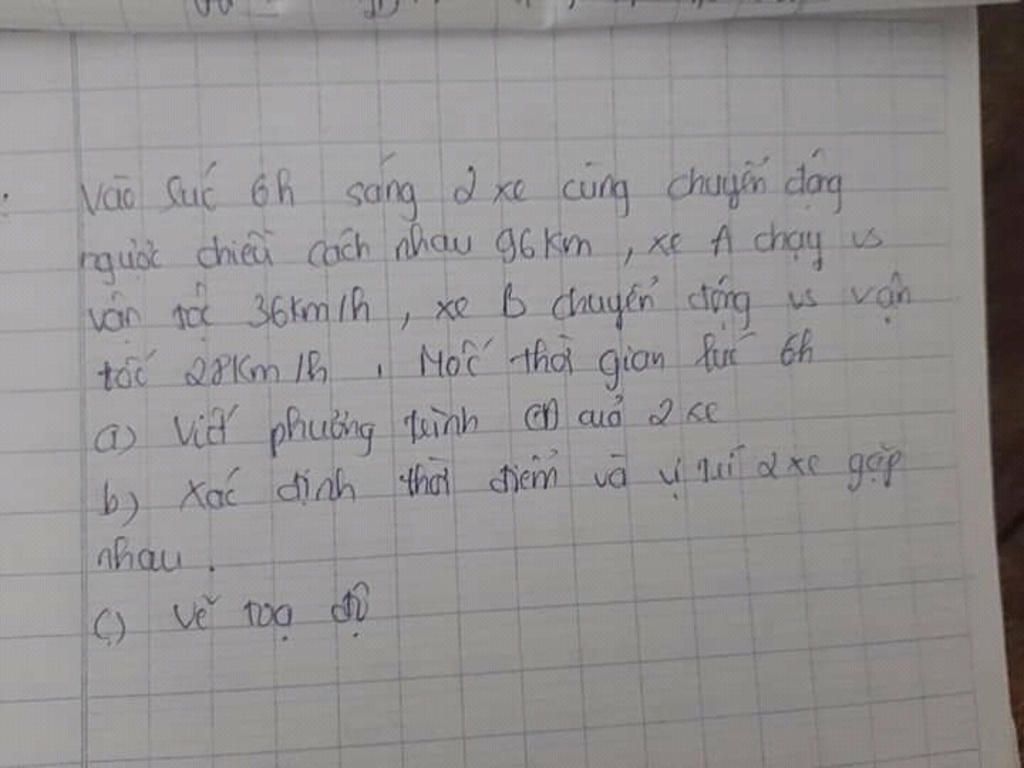 Vào lúc 6h sáng 2 xe cùng chuyển động
ngược chiều cách nhau 96km, xe A chạy vs
vận tốc 36km/h, xe B chuyển động vs vận
tốc 28km/h. Mốc thời gian lúc 6h
a) Viết phương trình cđ của 2 xe
b) Xác định thời điểm và vị trí 2 xe gặp
nhau.
c) Vẽ toạ độ